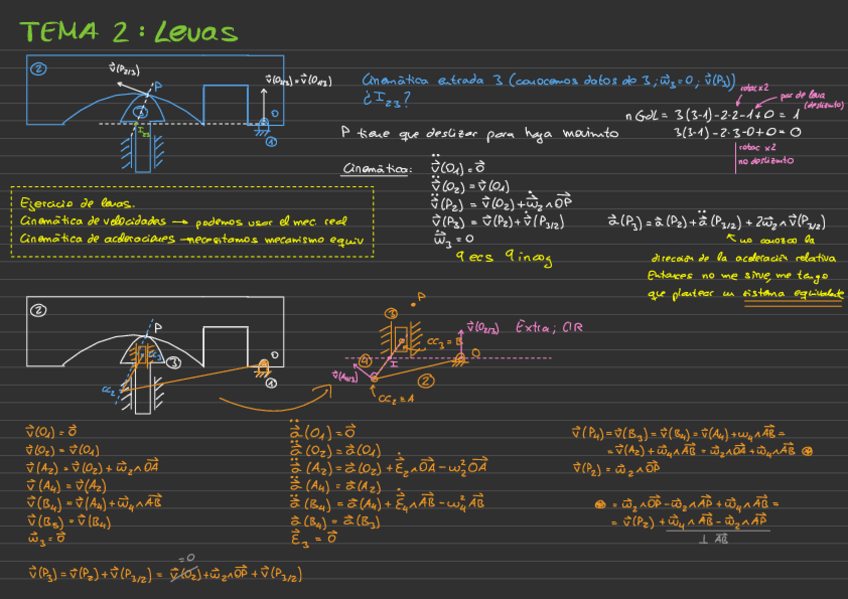 TEMA 2: Levas
②
v(P2/3)
P
③
I23
v(O2/3)=v(O1/3)
O
①
Cinemática entrada 3 (conocemos datos de 3; w3=0; v(P3))
¿I23?
rotac x2
par de leva (deslizto)
nGdL = 3(3-1)-2·2-1+0 = 1
P tiene que deslizar para haya movimiento
3(3-1)-2·3-0+0=0
rotac x2
no deslizto
Cinemática: v(O1)=0
v(O2)=v(O1)
v(P2)=v(O2)+w2∧OP
v(P3)=v(P2)+v(P3/2)
w3=0
9 ecs 9 incog
a(P3)=a(P2)+a(P3/2)+2w2∧v(P3/2)
no conozco la
dirección de la aceleración relativa
Entonces no me sirve, me tengo
que plantear un sistema equivalente
Ejercicio de levas.
Cinemática de velocidades → podemos usar el mec. real
Cinemática de aceleraciones → necesitamos mecanismo equiv
②
P
CC3
③
CC2
O
①
③
P
CC3=B
④
I
v(A4/3)
CC2=A
②
O
v(O2/3)
Extra; CIR
v(O1)=0
v(O2)=v(O1)
v(A2)=v(O2)+w2∧OA
v(A4)=v(A2)
v(B4)=v(A4)+w4∧AB
v(B3)=v(B4)
w3=0
a(O1)=0
a(O2)=a(O1)
a(A2)=a(O2)+ε2∧OA-w2²OA
a(A4)=a(A2)
a(B4)=a(A4)+ε4∧AB-w4²AB
a(B4)=a(B3)
ε3=0
v(P4)=v(B3)=v(B4)=v(A4)+w4∧AB=
=v(A2)+w4∧AB=w2∧OA+w4∧AB ⊛
v(P2)=w2∧OP
⊛ = w2∧OP-w2∧AP+w4∧AB=
= v(P2)+w4∧AB-w2∧AP
⊥ AB
=0
v(P3)=v(P2)+v(P3/2)= v(O2)+w2∧OP+v(P3/2)